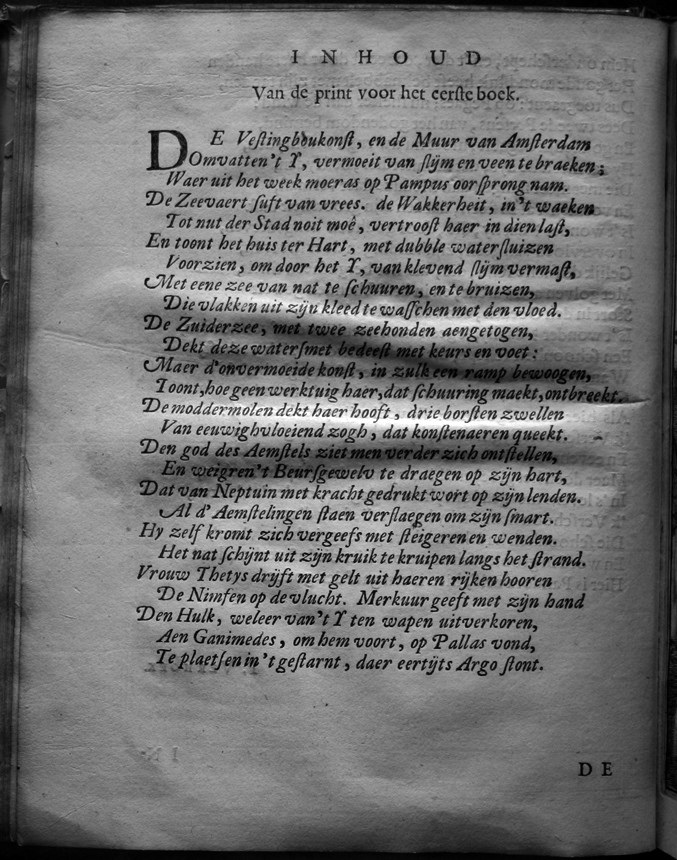 INHOUD
Van de print voor het eerste boek.
DE Vestingboukonst, en de Muur van Amsterdam
Omvatten't Y, vermoeit van slijm en veen te braeken;
Waer uit het week moeras op Pampus oorsprong nam.
De Zeevaert suft van vrees. de Wakkerheit, in't waeken
Tot nut der Stad noit moê, vertroost haer in dien last,
En toont het huis ter Hart, met dubble watersluizen
Voorzien, om door het Y, van klevend slijm vermast,
Met eene zee van nat te schuuren, en te bruizen,
Die vlakken uit zijn kleed te wasschen met den vloed.
De Zuiderzee, met twee zeehonden aengetogen,
Dekt deze watersmet bedeest met keurs en voet:
Maer d'onvermoeide konst, in zulk een ramp bewoogen,
Toont, hoe geen werktuig haer, dat schuuring maekt, ontbreekt.
De moddermolen dekt haer hooft, drie borsten zwellen
Van eeuwighvloeiend zogh, dat konstenaeren queekt.
Den god des Aemstels ziet men verder zich ontstellen,
En weigren't Beursgewelv te draegen op zijn hart,
Dat van Neptuin met kracht gedrukt wort op zijn lenden.
Al d'Aemstelingen staen verslaegen om zijn smart.
Hy zelf kromt zich vergeefs met steigeren en wenden.
Het nat schijnt uit zijn kruik te kruipen langs het strand.
Vrouw Thetys drijft met gelt uit haeren rijken hooren
De Nimfen op de vlucht. Merkuur geeft met zijn hand
Den Hulk, weleer van't Y ten wapen uitverkoren,
Aen Ganimedes, om hem voort, op Pallas vond,
Te plaetsen in't gestarnt, daer eertijts Argo stont.
DE